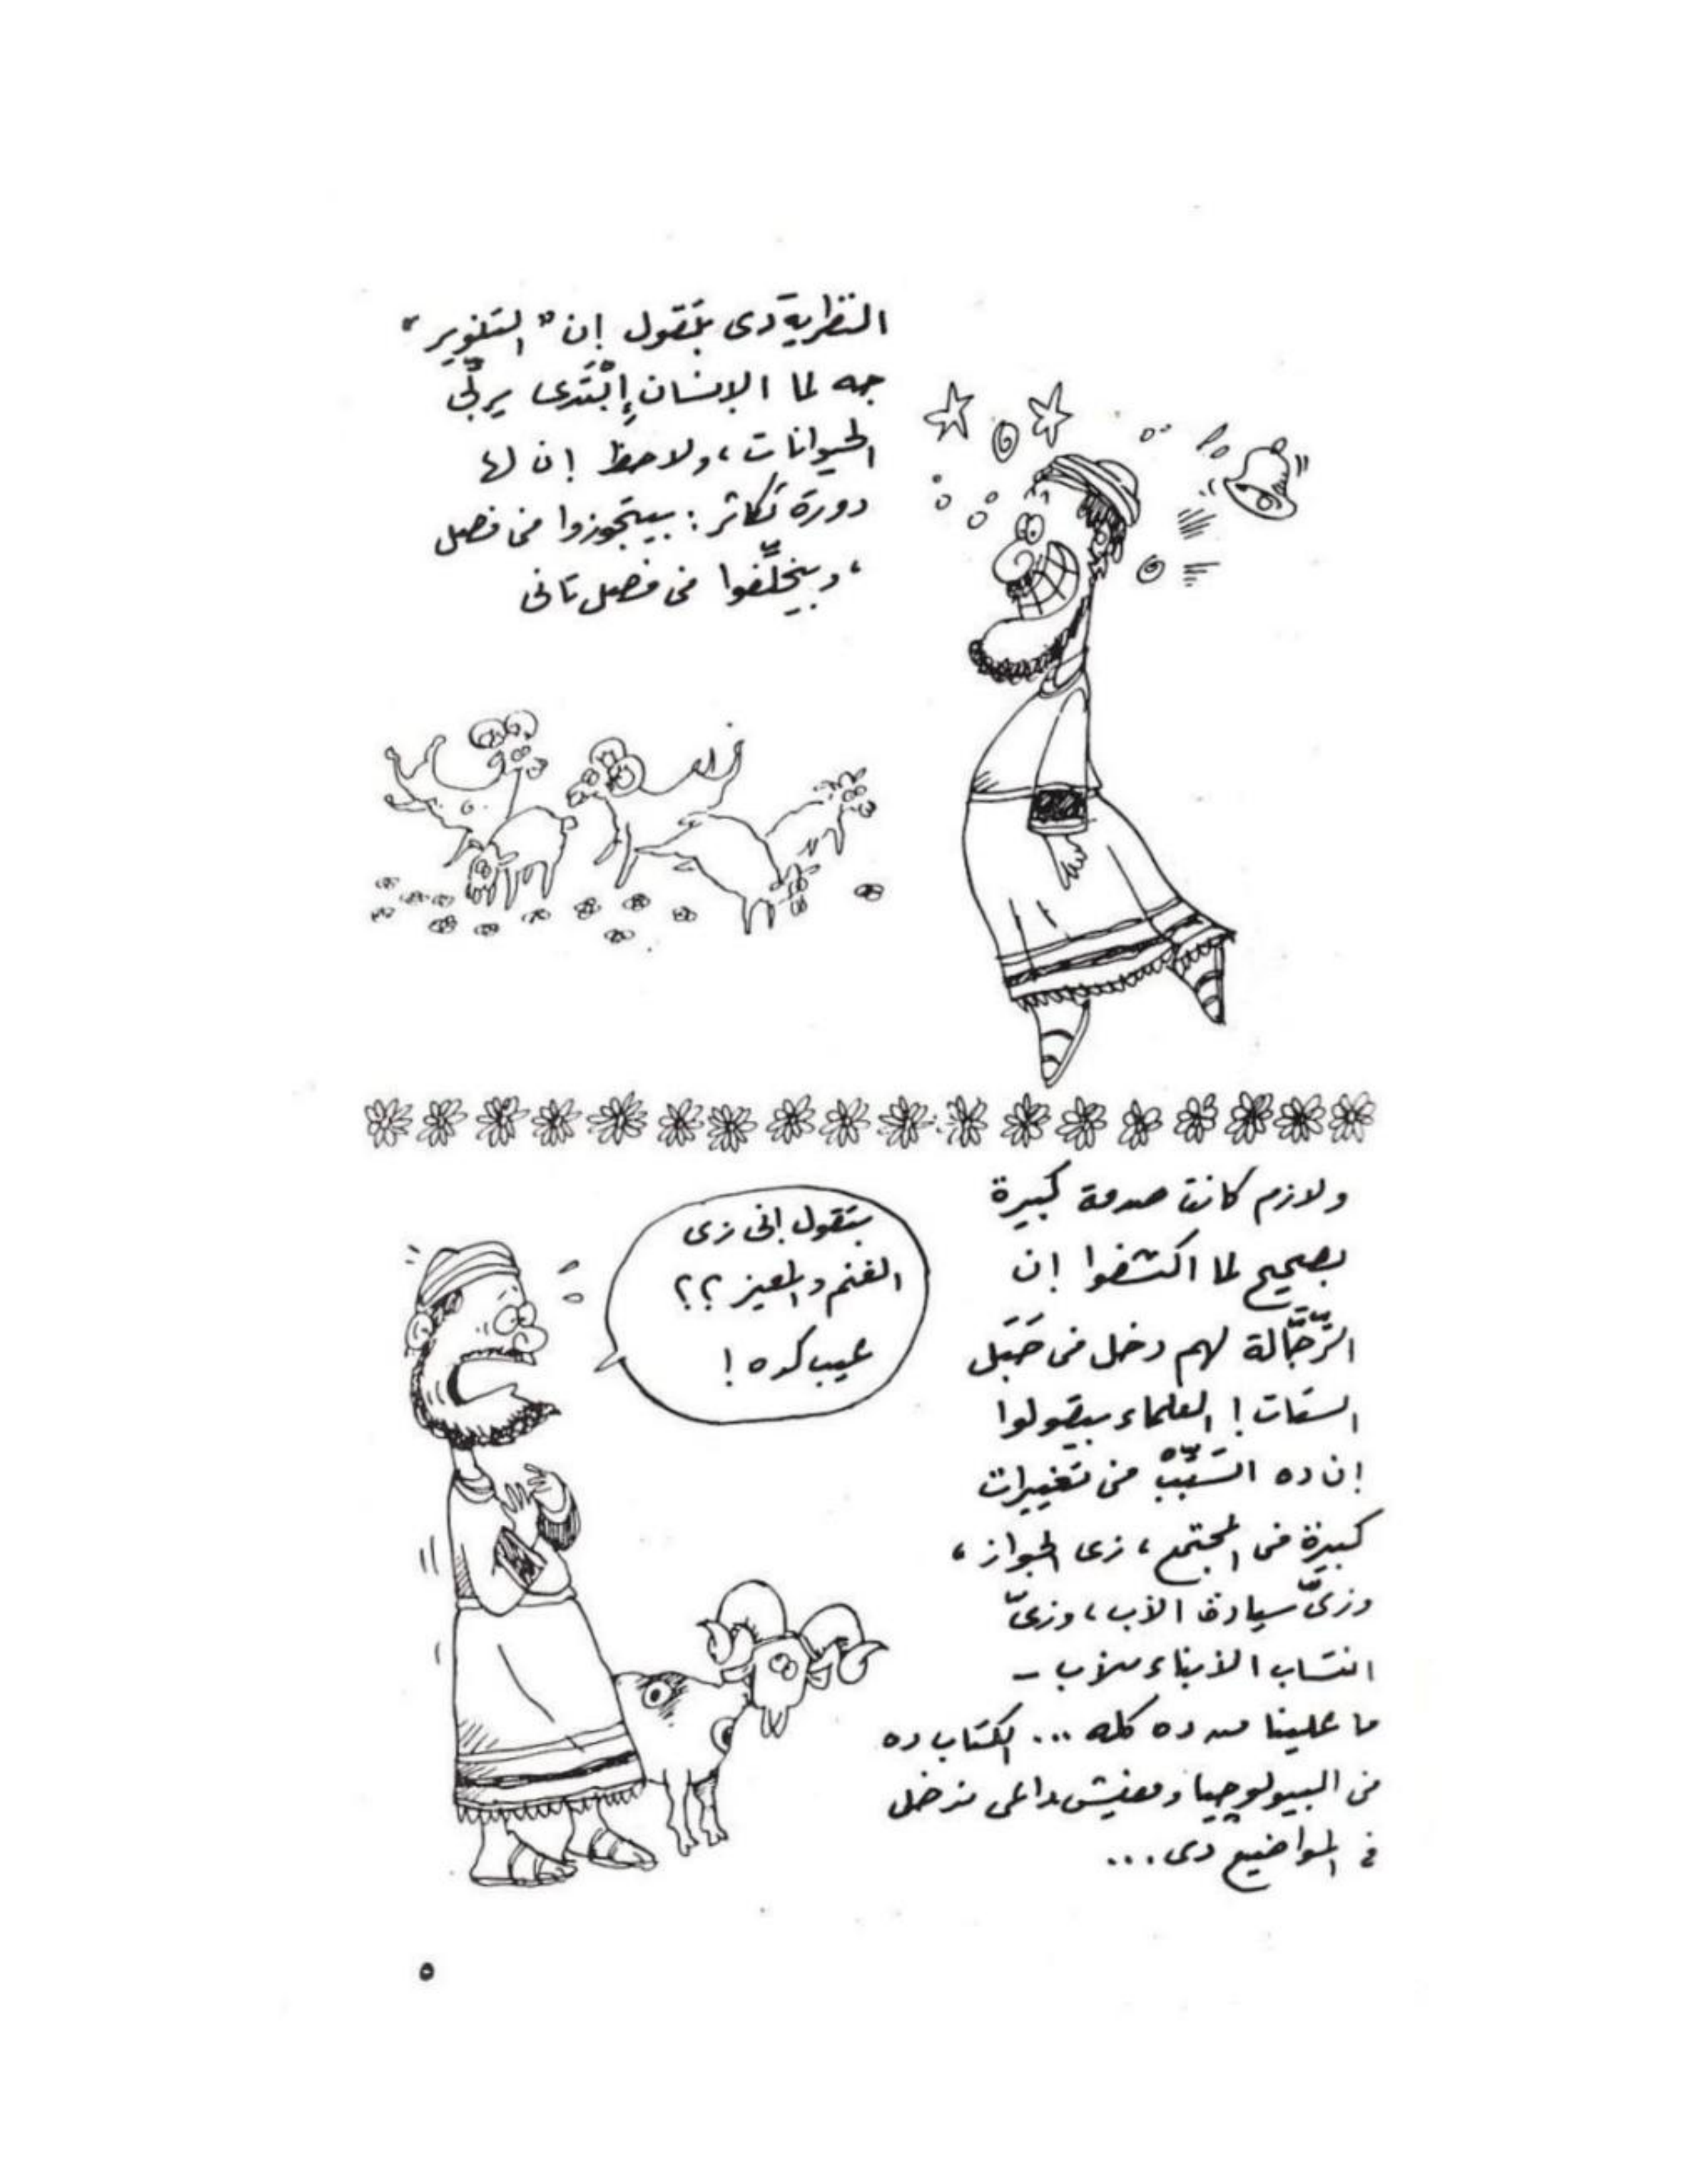 النظرية دى بتقول إن "التنوير"
جه لما الإنسان إِبْتَدى يربّى
الحيوانات، ولاحظ إن لها
دورة تَكاثر: بيتجوزوا فى فصل
، وبيخلِّفوا فى فصل تانى
ولازم كانت صدمة كبيرة
بصحيح لما اكتشفوا إن
الرِّجَّالة لهم دخل فى حَبَل
الستات! العلماء بيقولوا
إن ده اتسَبِّبْ فى تغييرات
كبيرة فى المجتمع، زى الجواز،
وزىّ سيادة الأب، وزىّ
انتساب الأبناء للأب -
ما علينا من ده كله ... الكتاب ده
فى البيولوچيا ومفيش داعى ندخل
فى المواضيع دى...
بتقول إنى زى
الغنم والمعيز؟؟
عيب كده!
٥